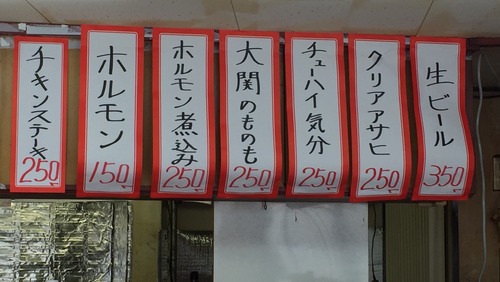 生ビール
350
クリアアサヒ
250
チューハイ気分
250
大関のものも
250
ホルモン煮込み
250
ホルモン
150
チキンステーキ
250